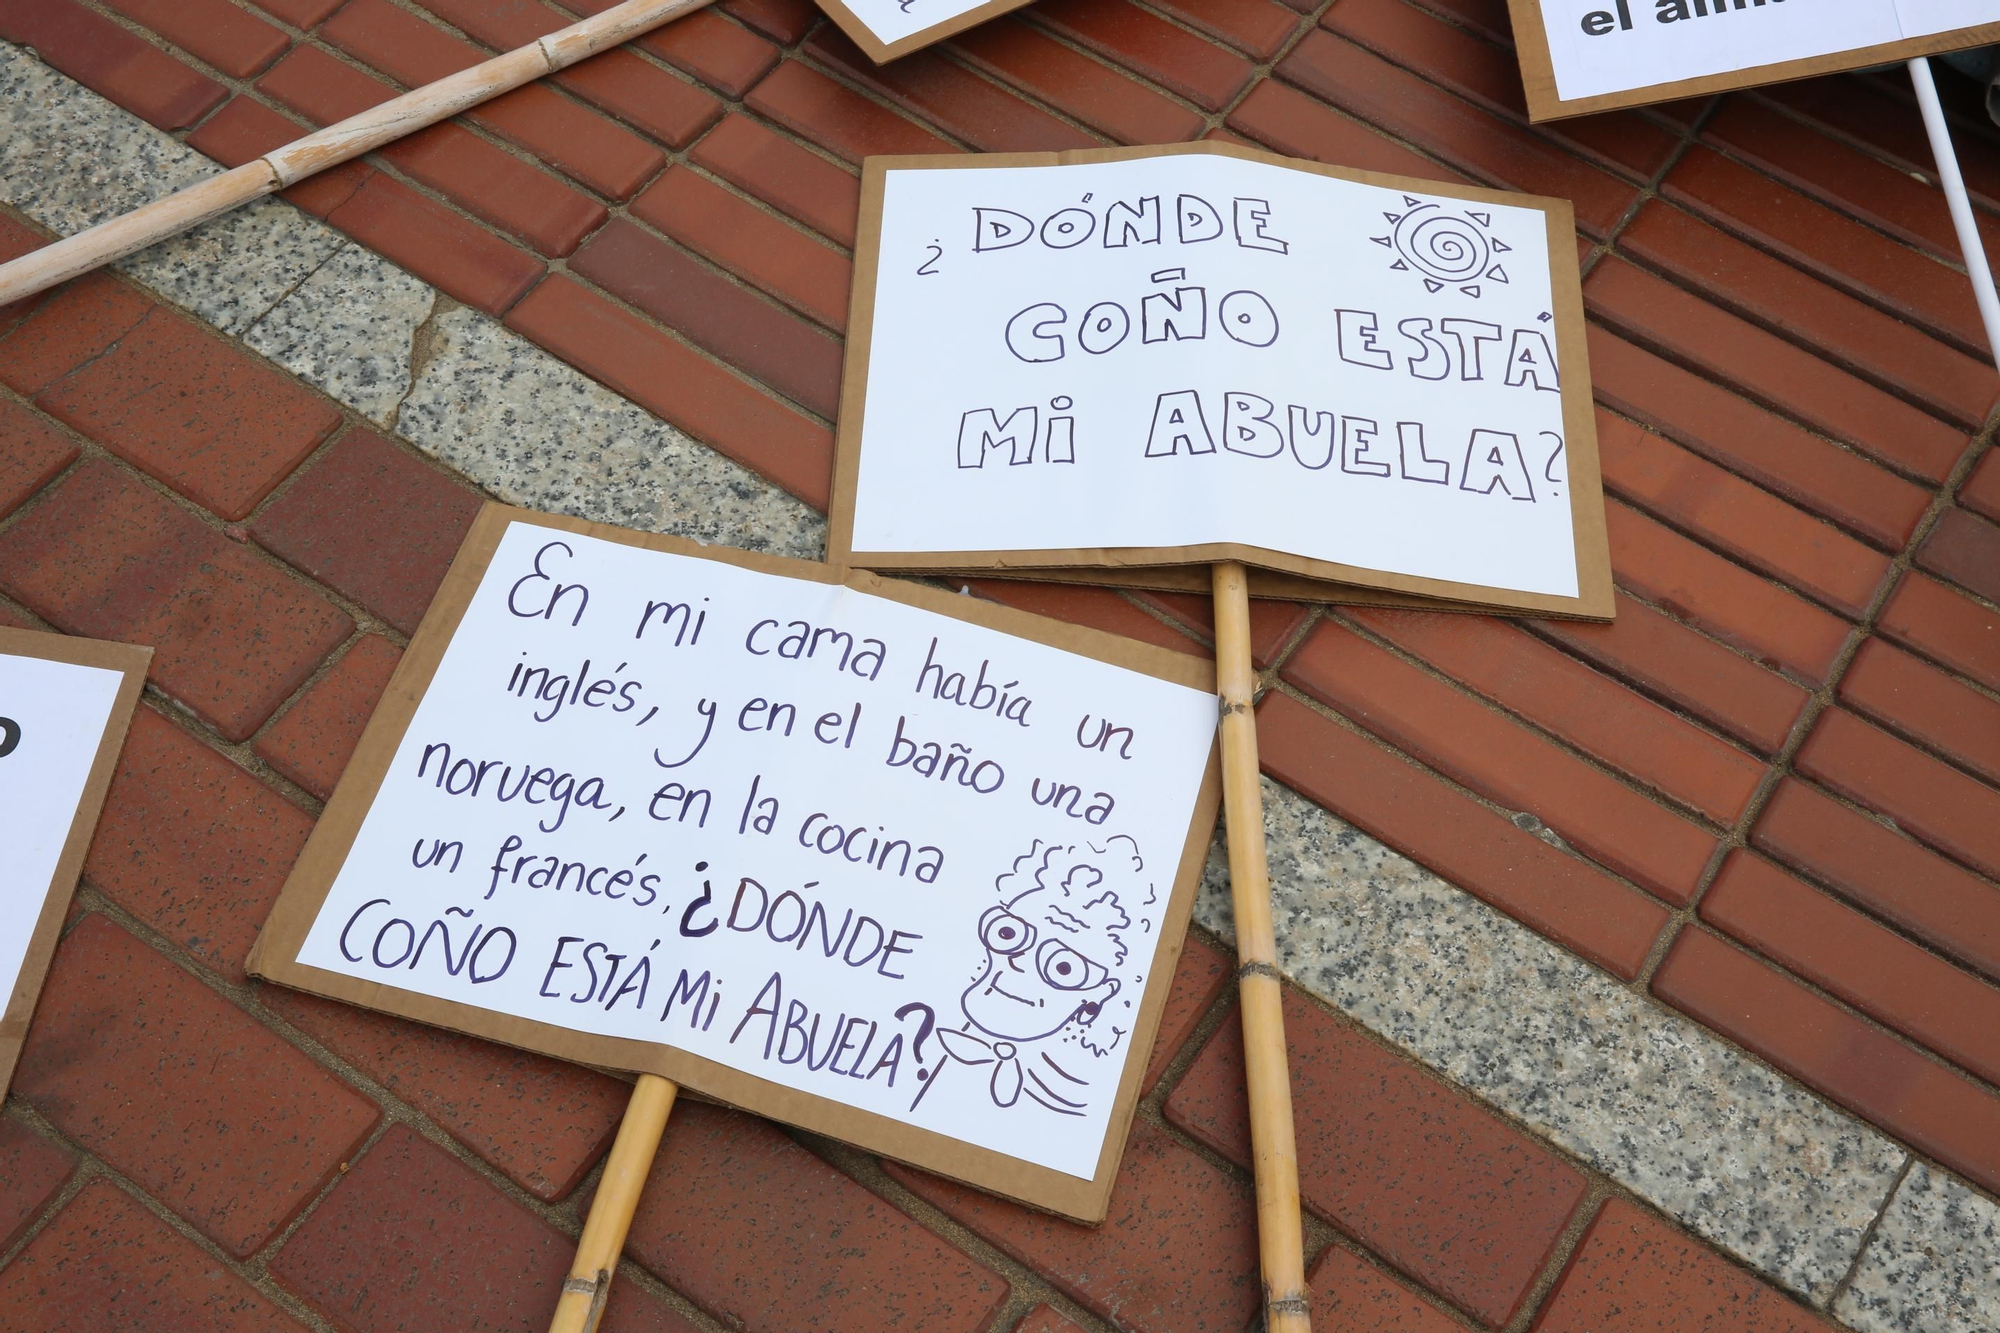 ¿DÓNDE
COÑO ESTÁ
MI ABUELA?
En mi cama había un
inglés, y en el baño una
noruega, en la cocina
un francés, ¿DÓNDE
COÑO ESTÁ Mi ABUELA?
el